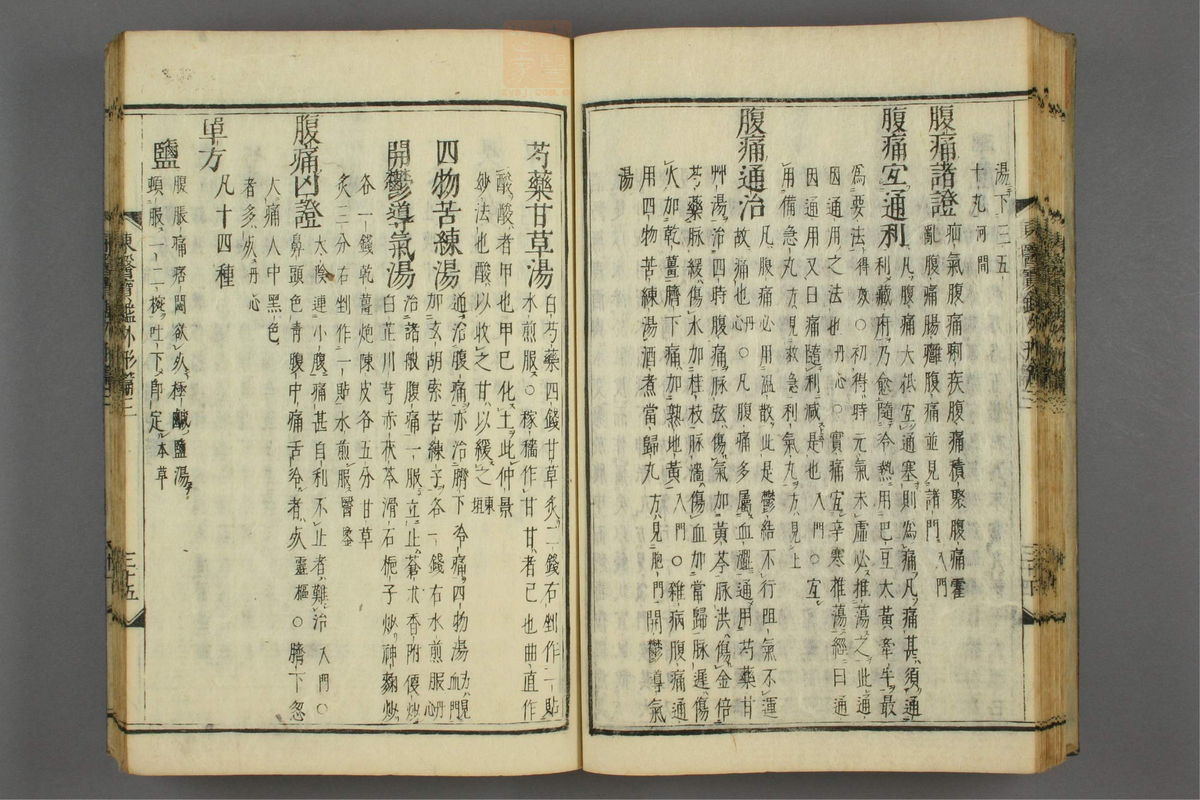 湯下三五
十丸河間
腹痛諸證疝氣腹痛痢疾腹痛積聚腹痛霍
亂腹痛腸癰腹痛並見諸門入門
腹痛宜通利凡腹痛大抵宜通塞則爲痛凡痛甚須通
利藏府乃愈隨冷熱用巴豆大黃牽牛最
爲要法得效○初得時元氣未虛必推蕩之此通
因通用之法也丹心○實痛宜辛寒推蕩經曰通
因通用又曰痛隨利減是也入門○宜
用備急丸方見救急利氣丸方見上
腹痛通治凡腹痛必用溫散此是鬱結不行阻氣不運
故痛也丹心○凡腹痛多屬血澁通用芍藥甘
艸湯治四時腹痛脉弦傷氣加黃芩脉洪傷金倍
芍藥脉緩傷水加桂枝脉濇傷血加當歸脉遲傷
火加乾薑臍下痛加熟地黃入門○雜病腹痛通
用四物苦練湯酒煮當歸丸方見胞門開鬱導氣
湯
芍藥甘草湯白芍藥四錢甘草炙二錢右剉作一貼
水煎服○稼穡作甘甘者己也曲直作
酸酸者甲也甲己化土此仲景
妙法也酸以收之甘以緩之東垣
四物苦練湯通治腹痛亦治臍下冷痛四物湯方見血門
加玄胡索苦練子各一錢右水煎服丹心
開鬱導氣湯治諸般腹痛一服立止蒼朮香附便炒
白芷川芎赤茯苓滑石梔子炒神麴炒
各一錢乾薑炮陳皮各五分甘草
炙三分右剉作一貼水煎服醫鑑
腹痛凶證大陰連小腹痛甚自利不止者難治入門○
鼻頭色靑腹中痛舌冷者死靈樞○臍下忽
大痛人中黑色
者多死丹心
單方凡十四種
鹽腹脹痛痞悶欲死極鹹鹽湯
頓服一二椀吐下卽定本草
東醫寶鑑外形篇三
三十五